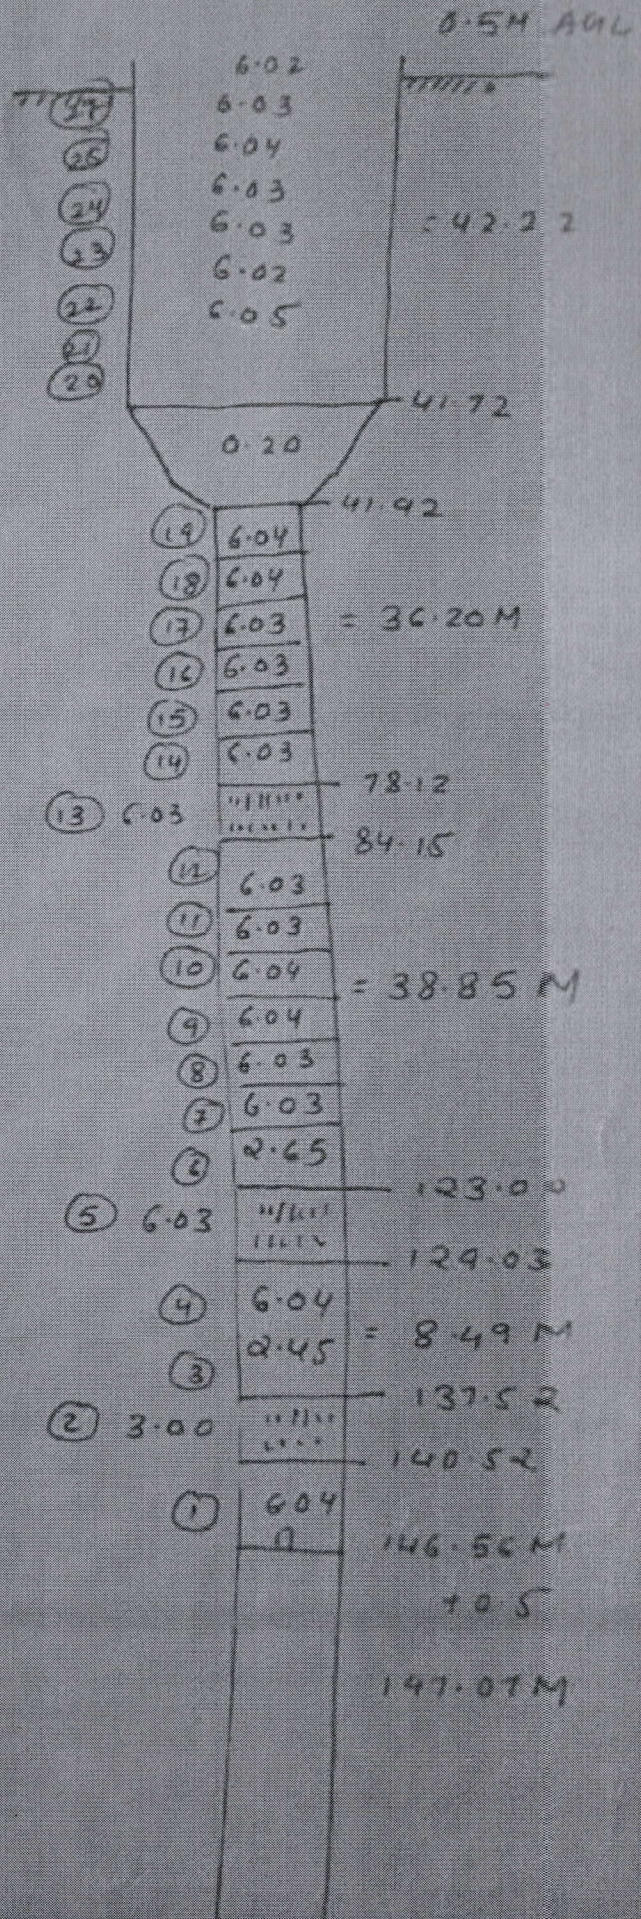 0.5M AGL
6.02
27 6.03
26 6.04
24 6.03
23 6.03 = 42.22
22 6.02
21 6.05
20
41.72
0.20
41.92
19 6.04
18 6.04
17 6.03 = 36.20 M
16 6.03
15 6.03
14 6.03
78.12
13 6.03
84.15
12 6.03
11 6.03
10 6.04 = 38.85 M
9 6.04
8 6.03
7 6.03
6 2.65
123.00
5 6.03
129.03
4 6.04
= 8.49 M
3 2.45
137.52
2 3.00
140.52
1 6.04
146.56 M
+0.5
147.07 M